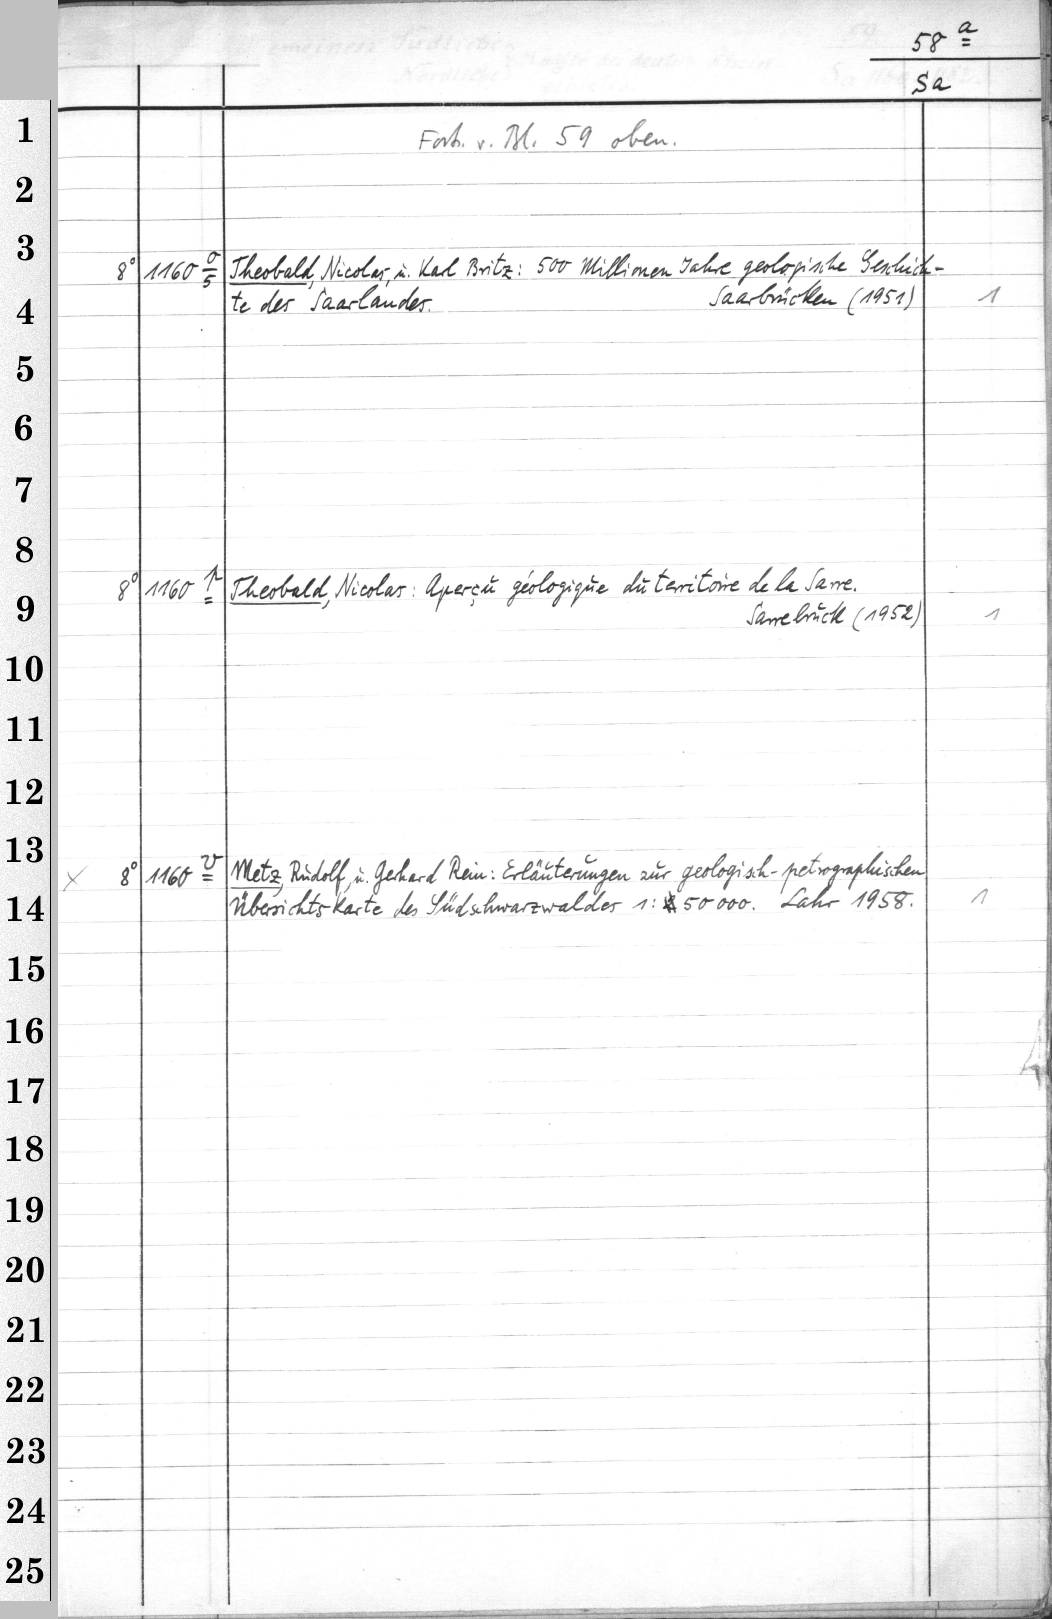 58 a
Sa
Forts. v. Bl. 59 oben.
1
2
3
8° 1160 o/5 Theobald, Nicolas, u. Karl Britz: 500 Millionen Jahre geologische Geschich-
te des Saarlandes. Saarbrücken (1951) 1
4
5
6
7
8
8° 1160 p Theobald, Nicolas: Aperçu géologique du territoire de la Sarre.
9
Sarrebrück (1952) 1
10
11
12
13
x 8° 1160 v Metz, Rudolf, u. Gerhard Rein: Erläuterungen zur geologisch-petrographischen
14
Übersichtskarte des Südschwarzwaldes 1:50 000. Lahr 1958. 1
15
16
17
18
19
20
21
22
23
24
25